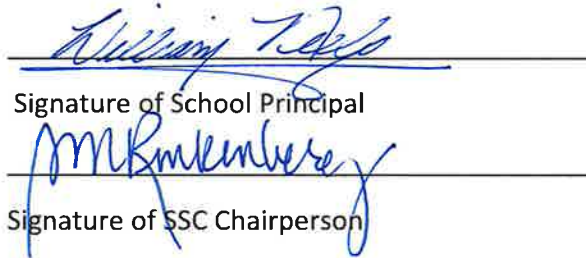 William
Signature of School Principal
Signature of SSC Chairperson